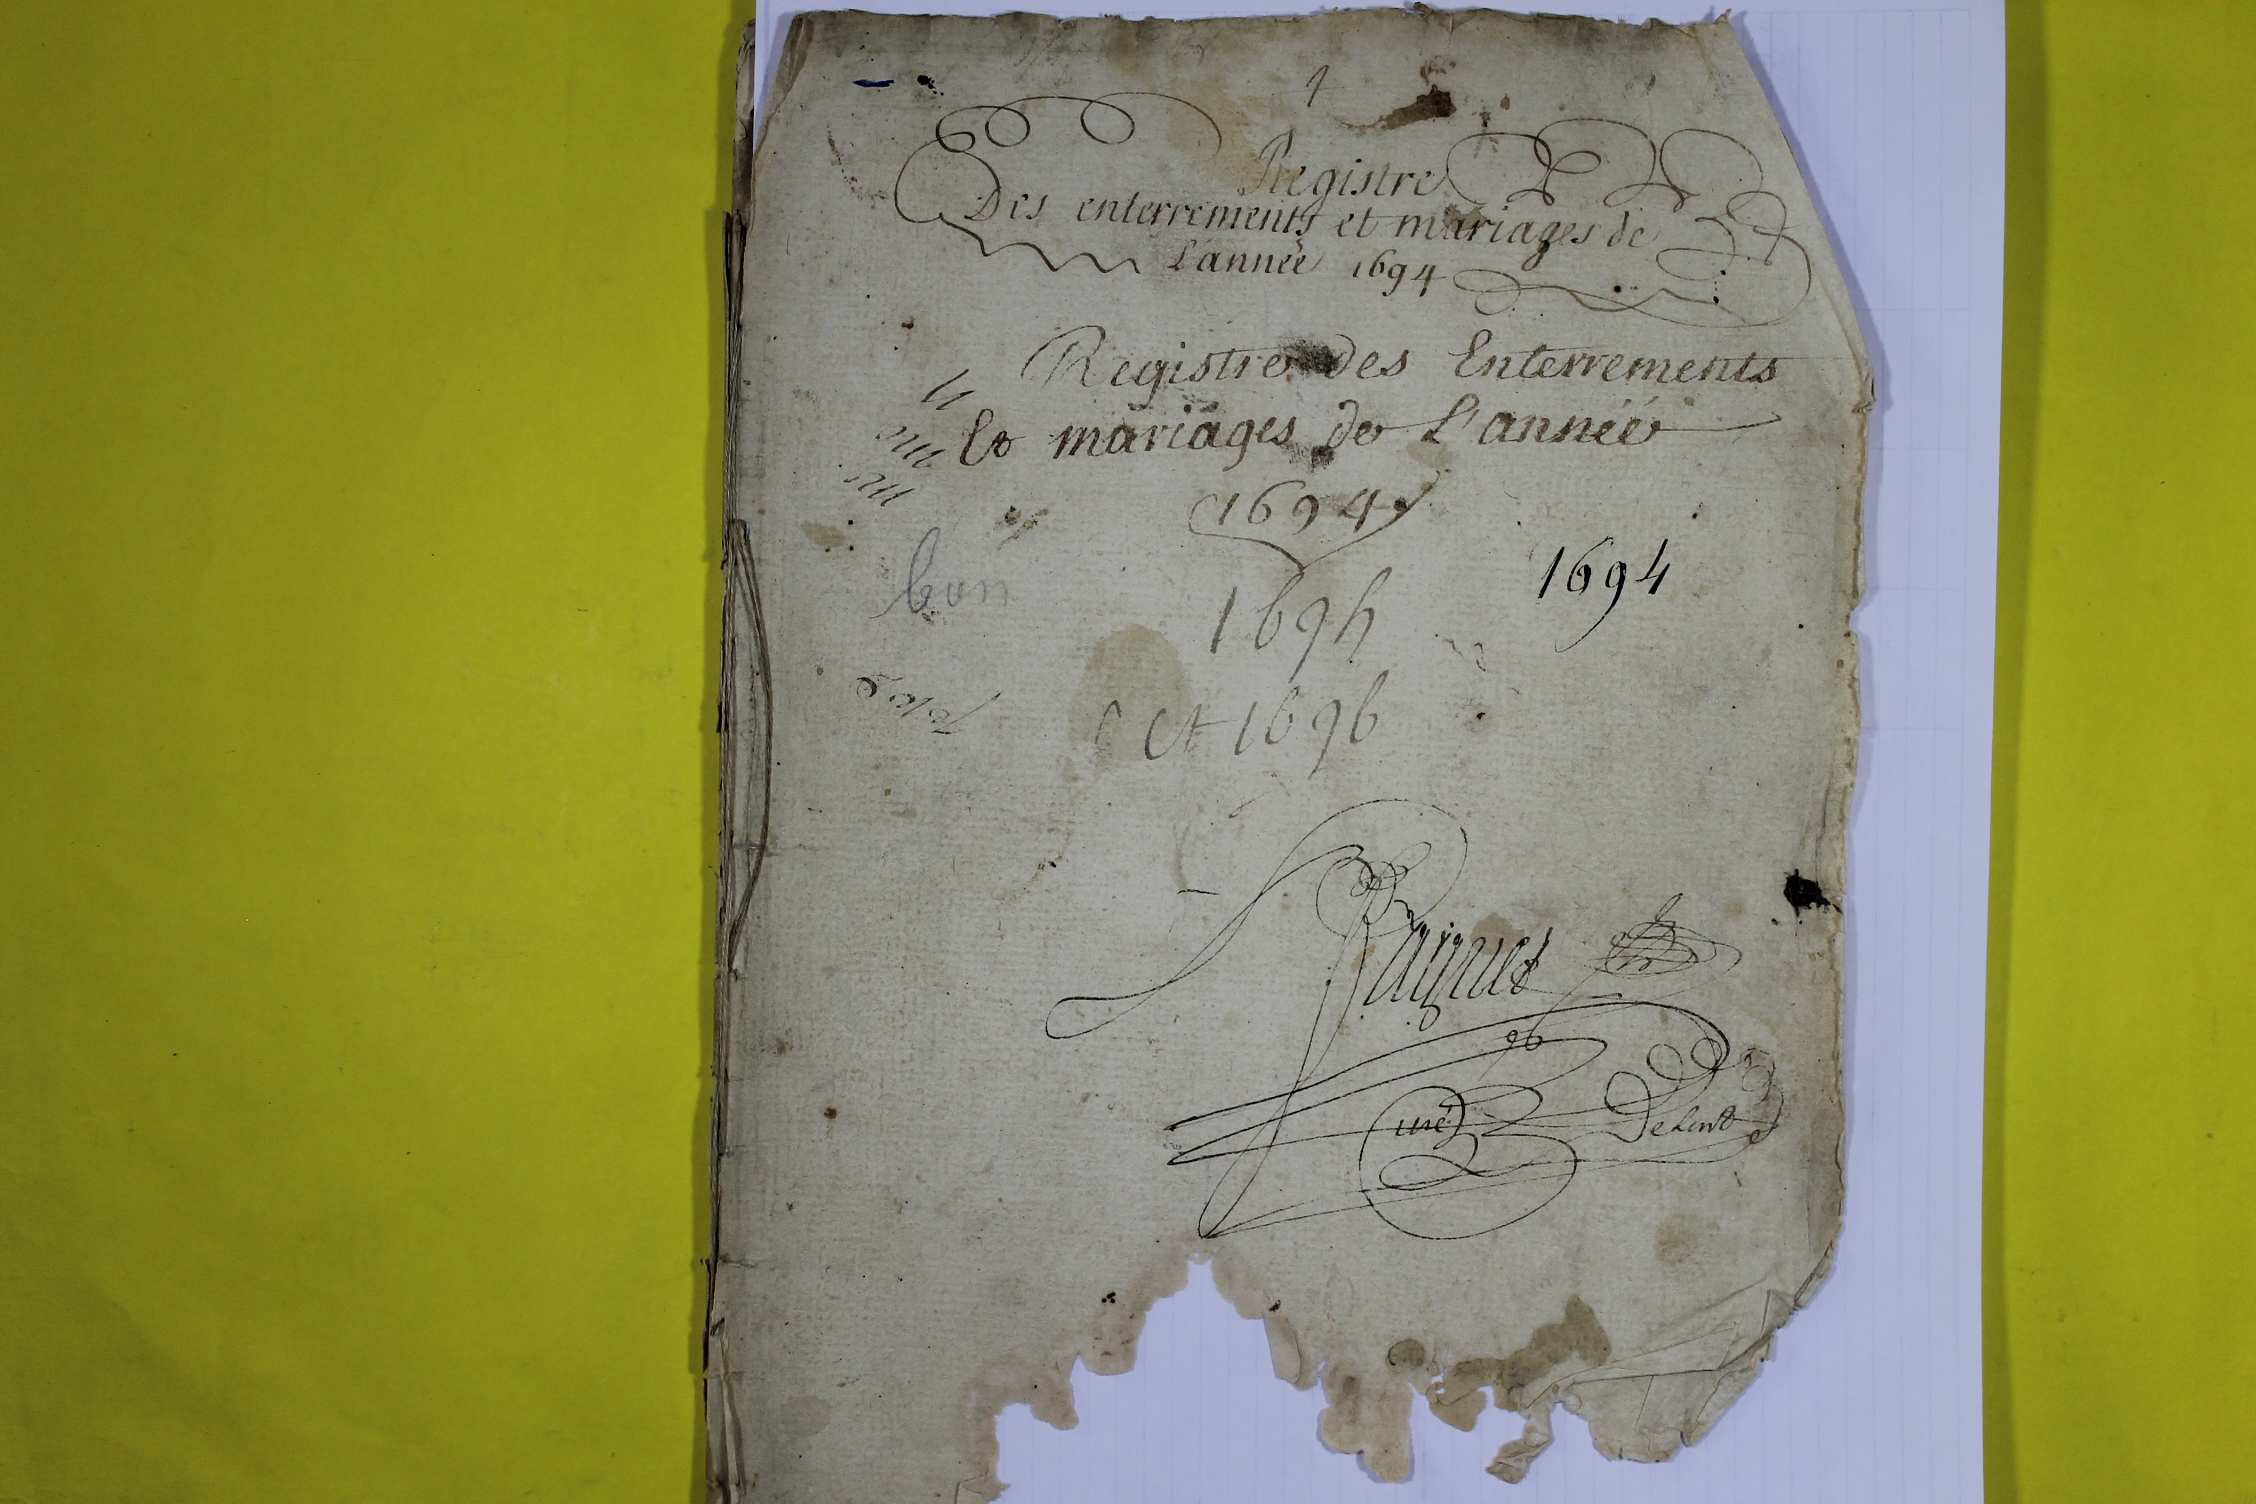 Registre
Des enterrements et mariages de
L'année 1694
Registre des Enterrements
Et mariages de L'année
1694
1694
1694
et 1696
bon
curé